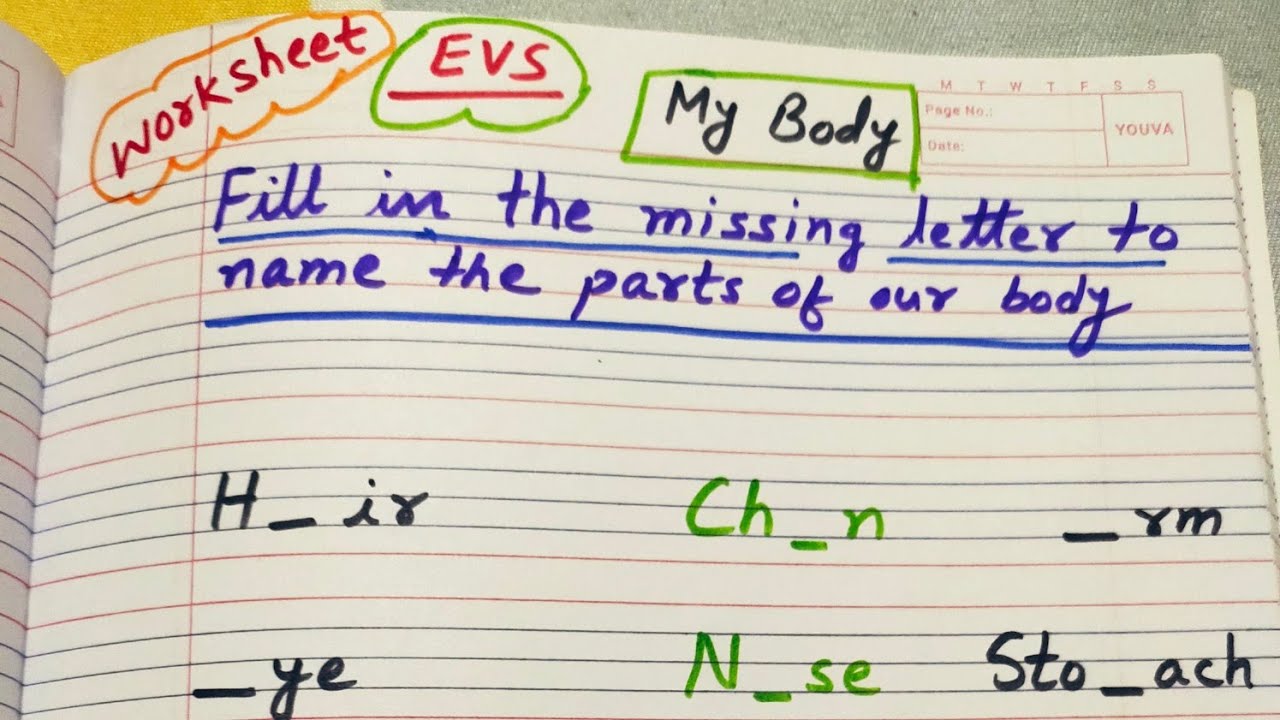 Worksheet
EVS
My Body
M T W T F S S
Page No.:
YOUVA
Date:
Fill in the missing letter to
name the parts of our body
H_ir Ch_n _rm
_ye N_se Sto_ach